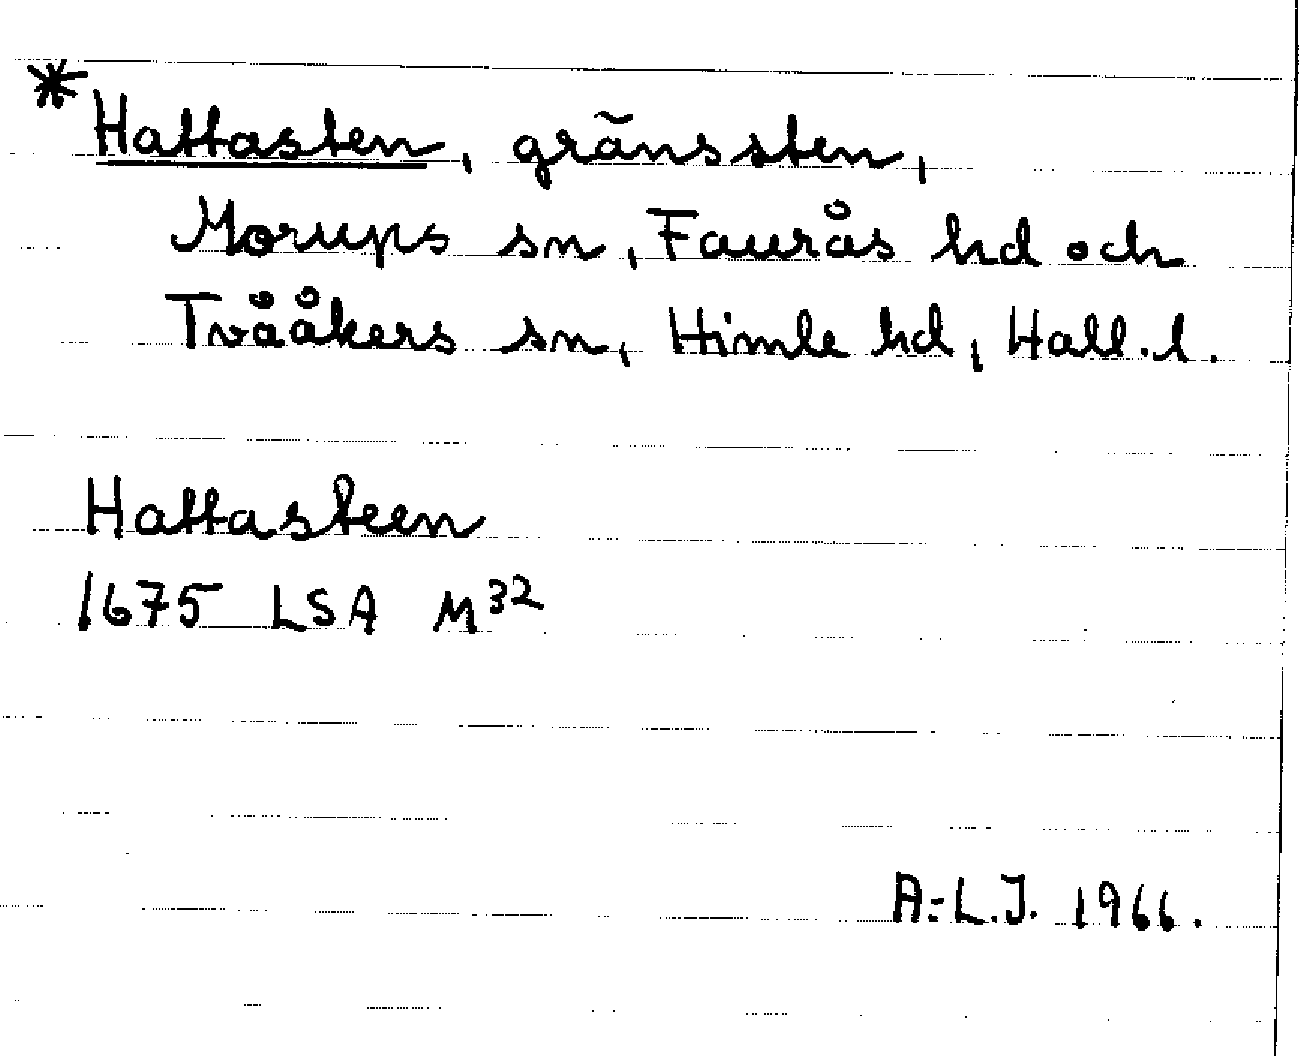 * Hattasten, gränssten,
Morups sn, Faurås hd och
Tvååkers sn, Himle hd, Hall. l.
Hattasteen
1675 LSA M³²
A.-L.J. 1966.